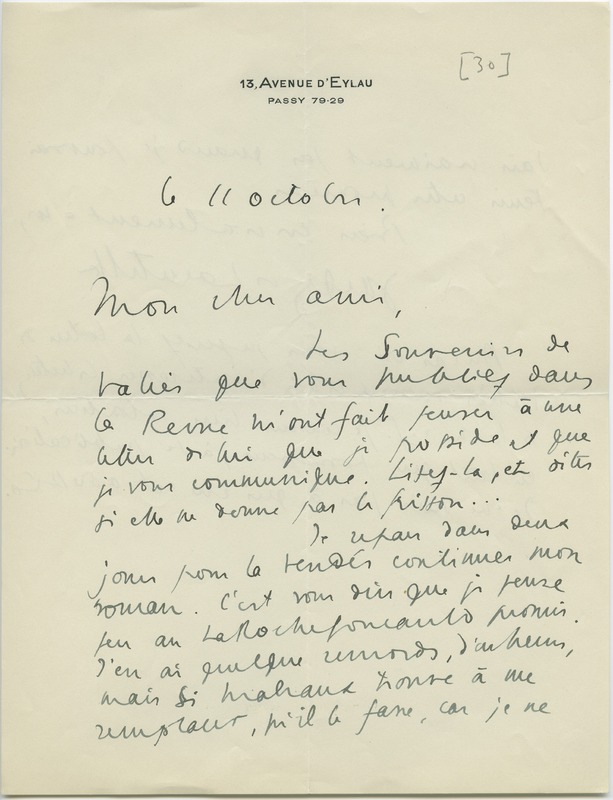 [30]
13, AVENUE D'EYLAU
PASSY 79-29
le 11 octobre.
Mon cher ami,
Les Souvenirs de
Vallès que vous publiez dans
la Revue m'ont fait penser à une
lettre de lui que je possède et que
je vous communique. Lisez-la, et dites
si elle ne donne pas le frisson...
Je repars dans deux
jours pour la Vendée continuer mon
roman. C'est vous dire que je pense
peu au LaRochefoucauld promis.
J'en ai quelque remords, d'ailleurs,
mais si Malraux trouve à me
remplacer, qu'il le fasse, car je ne